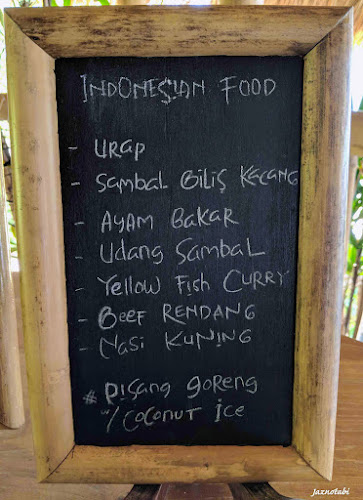 INDONESIAN FOOD
- URAP
- SAMBAL BILIS KACANG
- AYAM BAKAR
- Udang SAMBAL
- Yellow Fish CURRY
- BEEF RENDANG
- NASI KUNING
# PISANG GORENG
w/ COCONUT ICE
jaxnotabi